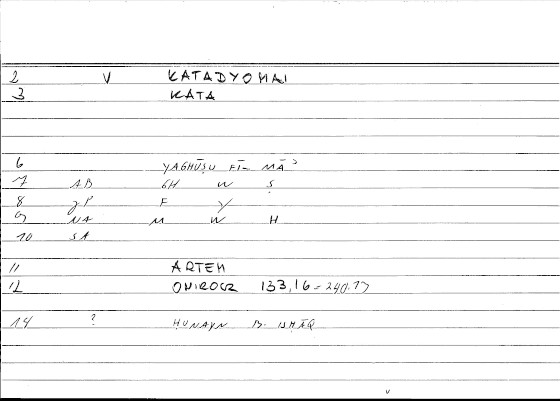 2 V KATADYOMAI
3 KATA
6 YAGHŪṢU FĪ- MĀʾ
7 AB GH W Ṣ
8 gP F Y
9 NA M W H
10 SA
11 ARTEM
12 ONIROCR 133,16 = 240.17
14 ? ḤUNAYN B. ISḤĀQ